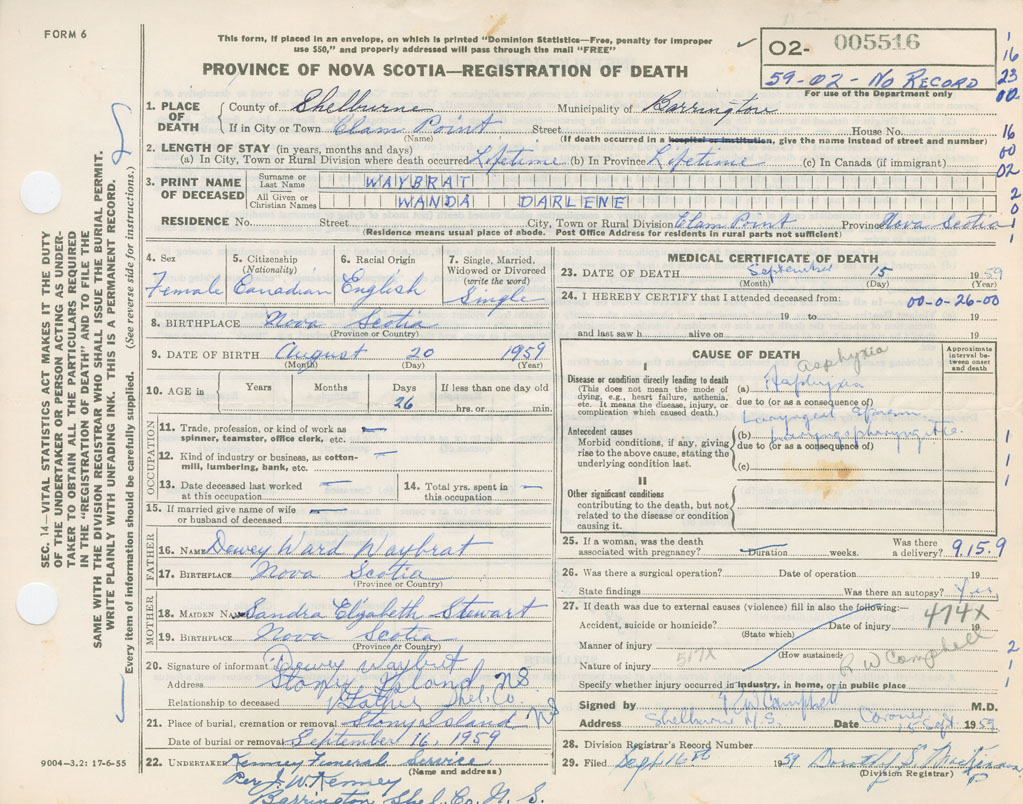 FORM 6
This form, if placed in an envelope, on which is printed "Dominion Statistics—Free, penalty for improper
use $50," and properly addressed will pass through the mail "FREE"
PROVINCE OF NOVA SCOTIA—REGISTRATION OF DEATH
O2- 005516
59-02-No Record
For use of the Department only
1
16
23
00
16
00
02
2
0
1
1
SEC. 14—VITAL STATISTICS ACT MAKES IT THE DUTY
OF THE UNDERTAKER OR PERSON ACTING AS UNDER-
TAKER TO OBTAIN ALL THE PARTICULARS REQUIRED
IN THE "REGISTRATION OF DEATH" AND TO FILE THE
SAME WITH THE DIVISION REGISTRAR WHO SHALL ISSUE THE BURIAL PERMIT.
WRITE PLAINLY WITH UNFADING INK. THIS IS A PERMANENT RECORD.
Every item of information should be carefully supplied. (See reverse side for instructions.)
1. PLACE OF DEATH County of Shelburne Municipality of Barrington
If in City or Town Clam Point Street House No.
(Name) (If death occurred in a hospital or institution, give the name instead of street and number)
2. LENGTH OF STAY (in years, months and days)
(a) In City, Town or Rural Division where death occurred Lifetime (b) In Province Lifetime (c) In Canada (if immigrant)
3. PRINT NAME OF DECEASED Surname or Last Name WAYBRAT
All Given or Christian Names WANDA DARLENE
RESIDENCE No. Street City, Town or Rural Division Clam Point Province Nova Scotia
(Residence means usual place of abode. Post Office Address for residents in rural parts not sufficient)
4. Sex Female
5. Citizenship (Nationality) Canadian
6. Racial Origin English
7. Single, Married, Widowed or Divorced (write the word) Single
8. BIRTHPLACE Nova Scotia
(Province or Country)
9. DATE OF BIRTH August 20 1959
(Month) (Day) (Year)
10. AGE in Years Months Days 26 If less than one day old hrs. or min.
OCCUPATION
11. Trade, profession, or kind of work as spinner, teamster, office clerk, etc. —
12. Kind of industry or business, as cotton-mill, lumbering, bank, etc. —
13. Date deceased last worked at this occupation —
14. Total yrs. spent in this occupation —
15. If married give name of wife or husband of deceased —
FATHER
16. Name Dewey Ward Waybrat
17. BIRTHPLACE Nova Scotia
(Province or Country)
MOTHER
18. MAIDEN NAME Sandra Elizabeth Stewart
19. BIRTHPLACE Nova Scotia
(Province or Country)
20. Signature of informant Dewey Waybret
Address Stony Island NS
Relationship to deceased Father Shel. Co.
21. Place of burial, cremation or removal Stony Island NS
Date of burial or removal September 16, 1959
9004-3.2: 17-6-55
22. UNDERTAKER Kenney Funeral Service
(Name and address)
Per J. W. Kenney
Barrington Shel. Co. N. S.
MEDICAL CERTIFICATE OF DEATH
23. DATE OF DEATH September 15 1959
(Month) (Day) (Year)
24. I HEREBY CERTIFY that I attended deceased from: 00-0-26-00
19 to 19
and last saw h alive on 19
CAUSE OF DEATH
Approximate interval between onset and death
I
Disease or condition directly leading to death
(This does not mean the mode of dying, e.g., heart failure, asthenia, etc. It means the disease, injury, or complication which caused death.)
asphyxia
(a) Asphyxia
due to (or as a consequence of)
Antecedent causes
Morbid conditions, if any, giving rise to the above cause, stating the underlying condition last.
Laryngeal Spasm
(b) Laryngopharyngitis
due to (or as a consequence of)
(c)
II
Other significant conditions
contributing to the death, but not related to the disease or condition causing it.
1
1
1
25. If a woman, was the death associated with pregnancy? Duration weeks. Was there a delivery? 9.15.9
26. Was there a surgical operation? Date of operation 19
State findings Was there an autopsy? Yes
27. If death was due to external causes (violence) fill in also the following:—
Accident, suicide or homicide? Date of injury 19
(State which)
474X
Manner of injury
(How sustained)
Nature of injury 517X R W Campbell
Specify whether injury occurred in industry, in home, or in public place
2
1
1
Signed by R W Campbell M.D.
Address Shelburne N.S. Date 15 Sept. 1959
Coroner
28. Division Registrar's Record Number
29. Filed Sept 16th 1959 Dorothy S
(Division Registrar)